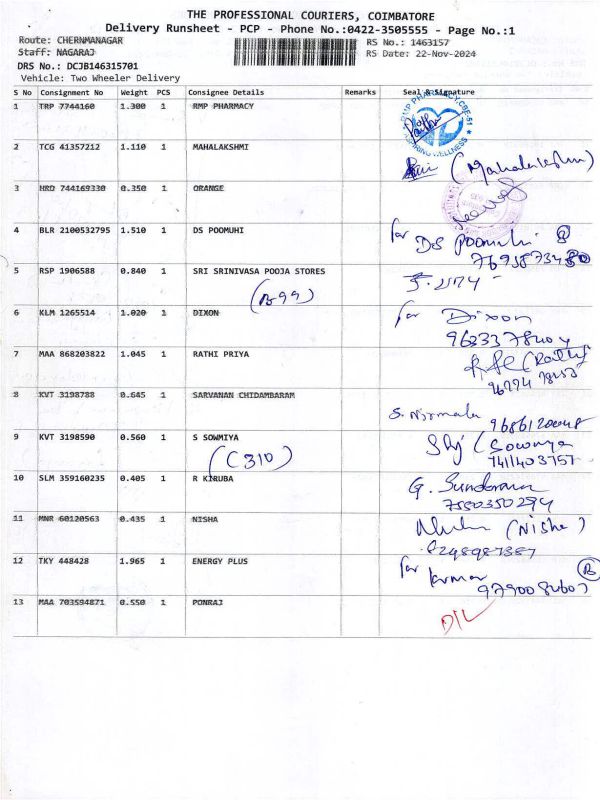 THE PROFESSIONAL COURIERS, COIMBATORE
Delivery Runsheet - PCP - Phone No.:0422-3505555 - Page No.:1
Route: CHERNMANAGAR
RS No.: 1463157
Staff: NAGARAJ
RS Date: 22-Nov-2024
DRS No.: DCJB146315701
Vehicle: Two Wheeler Delivery
S No Consignment No Weight PCS Consignee Details Remarks Seal & Signature
1 TRP 7744160 1.300 1 RMP PHARMACY
RMP PHARMACY, CBE-51
2 TCG 41357212 1.110 1 MAHALAKSHMI (Mahalakshmi)
3 HRD 744169330 0.350 1 ORANGE
4 BLR 2100532795 1.510 1 DS POOMUHI for DS Poomuhi
5 RSP 1906588 0.840 1 SRI SRINIVASA POOJA STORES
(B-99)
6 KLM 1265514 1.020 1 DIXON for Dixon
7 MAA 868203822 1.045 1 RATHI PRIYA
8 KVT 3198788 0.645 1 SARVANAN CHIDAMBARAM S. Nirmala
9 KVT 3198590 0.560 1 S SOWMIYA (Sowmya
7411403757
(C310)
10 SLM 359160235 0.405 1 R KIRUBA G. Sundaram
7550350294
11 MNR 60120563 0.435 1 NISHA (Nisha)
8248987387
12 TKY 448428 1.965 1 ENERGY PLUS for kumar
13 MAA 703594871 0.550 1 PONRAJ D/L